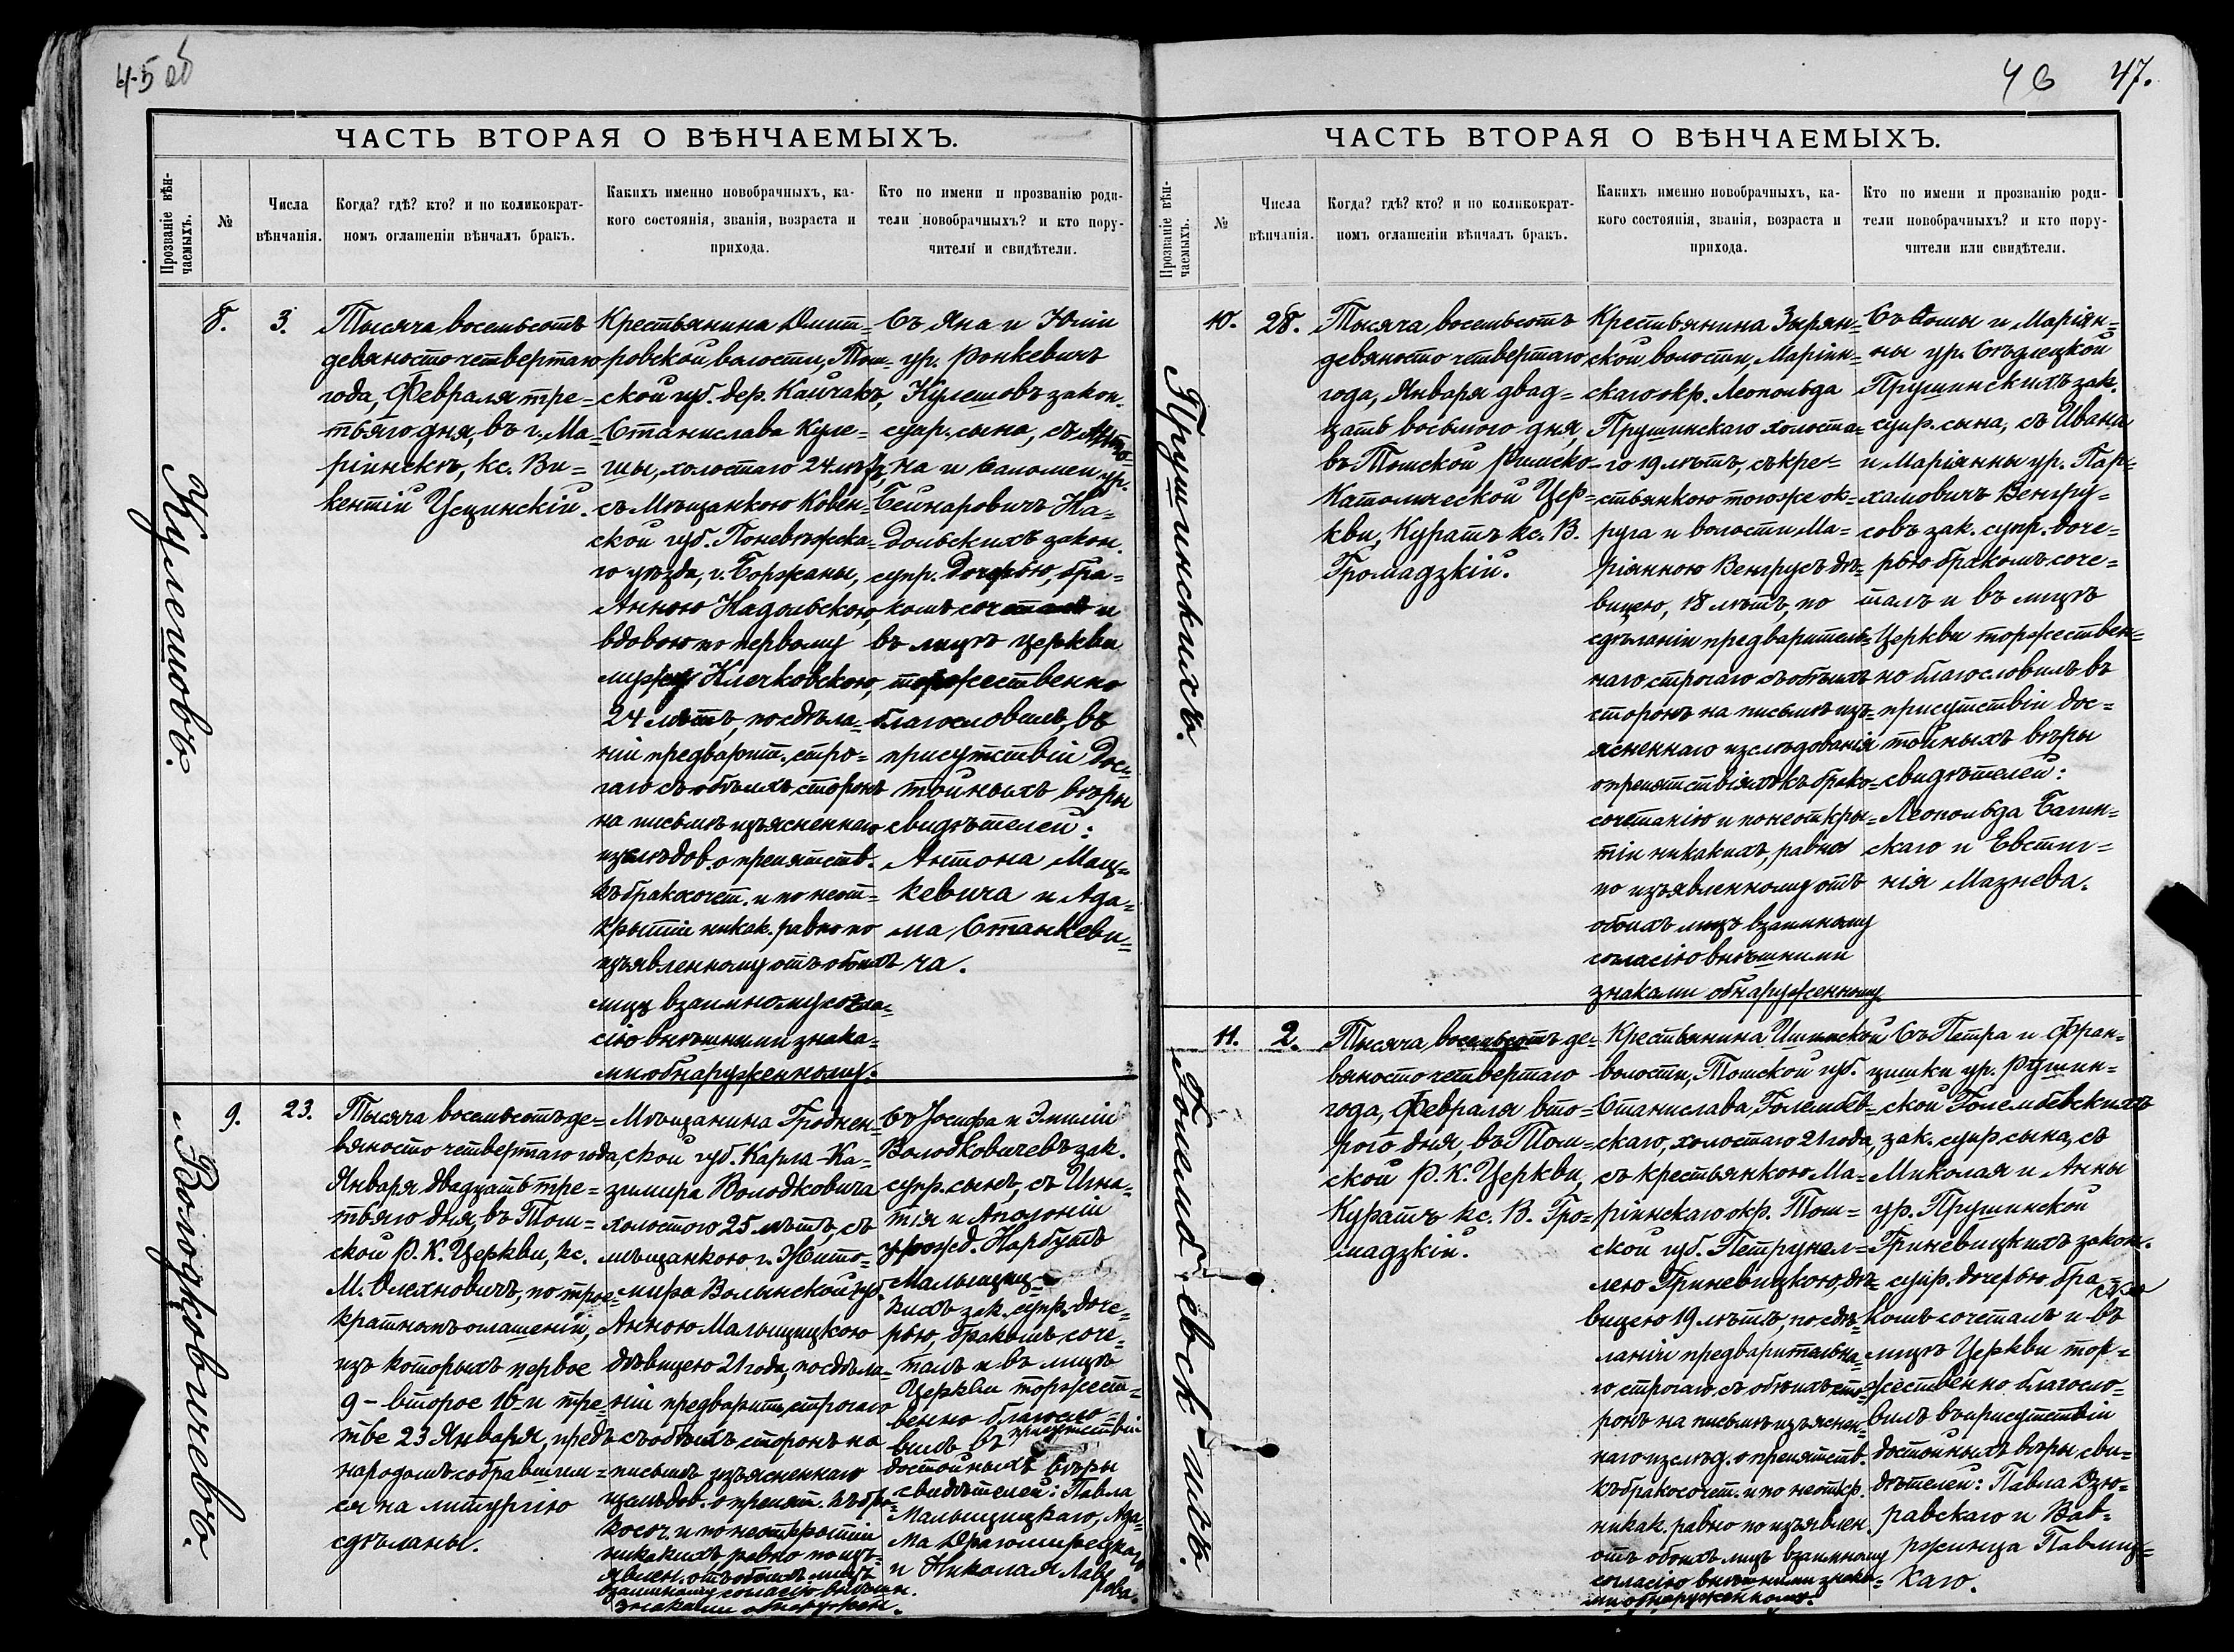 45 об
ЧАСТЬ ВТОРАЯ О ВѢНЧАЕМЫХЪ.
Прозваніе вѣн-
чаемыхъ.
№
Числа
вѣнчанія.
Когда? гдѣ? кто? и по коликократ-
номъ оглашеніи вѣнчалъ бракъ.
Какихъ именно новобрачныхъ, ка-
кого состоянія, званія, возраста и
прихода.
Кто по имени и прозванію роди-
тели новобрачныхъ? и кто пору-
чители и свидѣтели.
Кулешовъ.
8.
3.
Тысяча восемьсотъ
девяносто четвертаго
года, Февраля тре=
тьяго дня, въ г. Ма=
ріинскѣ, кс. Ви=
кентій Усцинскій.
Крестьянина Дмит=
ровской волости, Том=
ской губ. дер. Кайчакъ,
Станислава Куле=
шы, холостаго 24 лѣтъ,
съ Мѣщанкою Ковен=
ской губ. Поневѣжска=
го уѣзда, г. Боржаны,
Анною Надольскою,
вдовою по первому
мужу Клечковскою,
24 лѣтъ, по сдѣла=
ніи предварит. стро=
гаго съ обѣихъ сторонъ
на письмѣ изъясненнаго
изслѣдов. о препятств.
къ бракосочет. и по неот=
крытіи никак. равно по
изъявленному отъ обоихъ
лицъ взаимному согла=
сію внѣшними знака=
ми обнаруженному.
Съ Яна и Юліи
ур. Ронкевичъ
Кулешовъ закон.
супр. сына, съ Анто=
на и Саломеи ур.
Бейнаровичъ На=
дольскихъ закон.
супр. дочерью, бра=
комъ сочеталъ и
въ лицѣ церкви
торжественно
благословилъ, въ
присутствіи дос=
тойныхъ вѣры
свидѣтелей:
Антона Мац=
кевича и Ада=
ма Станкеви=
ча.
Володковичевъ.
9.
23.
Тысяча восемьсотъ де=
вяносто четвертаго года,
Января двадцать тре=
тьяго дня, въ Том=
ской Р. К. Церкви, кс.
М. Олехновичъ, по трое=
кратномъ оглашеніи,
изъ которыхъ первое
9 – второе 16 и тре=
тье 23 Января, предъ
народомъ собравшим=
ся на литургію
сдѣланы.
Мѣщанина Гроднен=
ской губ. Карла-Ка=
зимира Володковича
холостого 25 лѣтъ, съ
мѣщанкою г. Жито=
мира Волынской губ.
Анною Малыщицкою
дѣвицею 21 года, по сдѣла=
ніи предварит. строгаго
съ обѣихъ сторонъ на
письмѣ изъясненнаго
изслѣдов. о препят. къ бра=
косоч. и по неоткрытіи
никакихъ равно по изъ=
явлен. отъ обоихъ лицъ
взаимному согласію внѣшн.
знаками обнаружен.
Съ Іосифа и Эмиліи
Володковичевъ зак.
супр. сына, съ Игна=
тія и Аполоніи
урожд. Нарбутъ
Малыщиц=
кихъ зак. супр. доче=
рью, бракомъ соче=
талъ и въ лицѣ
Церкви торжест=
венно благосло=
вилъ въ присутствіи
достойныхъ вѣры
свидѣтелей: Павла
Малыщицкаго, Ада=
ма Драгомирецкаго
и Николая Лав
рова.
46 47.
ЧАСТЬ ВТОРАЯ О ВѢНЧАЕМЫХЪ.
Прозваніе вѣн-
чаемыхъ.
№
Числа
вѣнчанія.
Когда? гдѣ? кто? и по коликократ-
номъ оглашеніи вѣнчалъ бракъ.
Какихъ именно новобрачныхъ, ка-
кого состоянія, званія, возраста и
прихода.
Кто по имени и прозванію роди-
тели новобрачныхъ? и кто пору-
чители или свидѣтели.
Прушинскихъ.
10.
28.
Тысяча восемьсотъ
девяносто четвертаго
года, Января двад=
цать восьмого дня,
въ Томской Римско=
Католической Цер=
кви, Куратъ кс. В.
Громадзкій.
Крестьянина Зырян=
ской волости, Маріин=
скаго окр. Леопольда
Прушинскаго холоста=
го 19 лѣтъ, съ кре=
стьянкою того же ок=
руга и волости Ма=
ріянною Венгрусъ дѣ=
вицею, 18 лѣтъ, по
сдѣланіи предваритель=
наго строгаго съ обѣихъ
сторонъ на письмѣ изъ=
ясненнаго изслѣдованія
о препятствіяхъ къ брако=
сочетанію и по неоткры=
тіи никакихъ, равно
по изъявленному отъ
обоихъ лицъ взаимному
согласію внѣшними
знаками обнаруженному
Съ Ѳомы и Маріян=
ны ур. Сѣдлецкой
Прушинскихъ зак.
супр. сына, съ Ивана
и Маріянны ур. Пар=
хамовичъ Венгру=
совъ зак. супр. доче=
рью бракомъ соче=
талъ и въ лицѣ
Церкви торжествен=
но благословилъ въ
присутствіи дос=
тойныхъ вѣры
свидѣтелей:
Леопольда Багин=
скаго и Евстиг=
нія Мазнева.
Голембевскихъ.
11.
2.
Тысяча восемьсотъ де=
вяносто четвертаго
года, Февраля вто=
рого дня, въ Том=
ской Р. К. Церкви,
Куратъ кс. В. Гро=
мадзкій.
Крестьянина Ишимской
волости, Томской губ.
Станислава Голембев=
скаго, холостаго 21 года,
съ крестьянкою Ма=
ріинскаго окр. Том=
ской губ. Петрунел=
лею Гриневицкою, дѣ=
вицею 19 лѣтъ, по сдѣ=
ланіи предварительна=
го строгаго съ обѣихъ сто=
ронъ на письмѣ изъяснен=
наго изслѣд. о препятств.
къ бракосочет. и по неоткр.
никак. равно по изъявлен.
отъ обоихъ лицъ взаимному
согласію внѣшними знака=
ми обнаруженному.
Съ Петра и Фран=
цишки ур. Рушин=
ской Голембевскихъ
зак. супр. сына, съ
Миколая и Анны
ур. Прушинской
Гриневицкихъ закон.
супр. дочерью бра=
комъ сочеталъ и въ
лицѣ Церкви тор=
жественно благосло=
вилъ въ присутствіи
достойныхъ вѣры сви=
дѣтелей: Павла Дзю=
равскаго и Вав=
ржинца Павлиц=
каго.